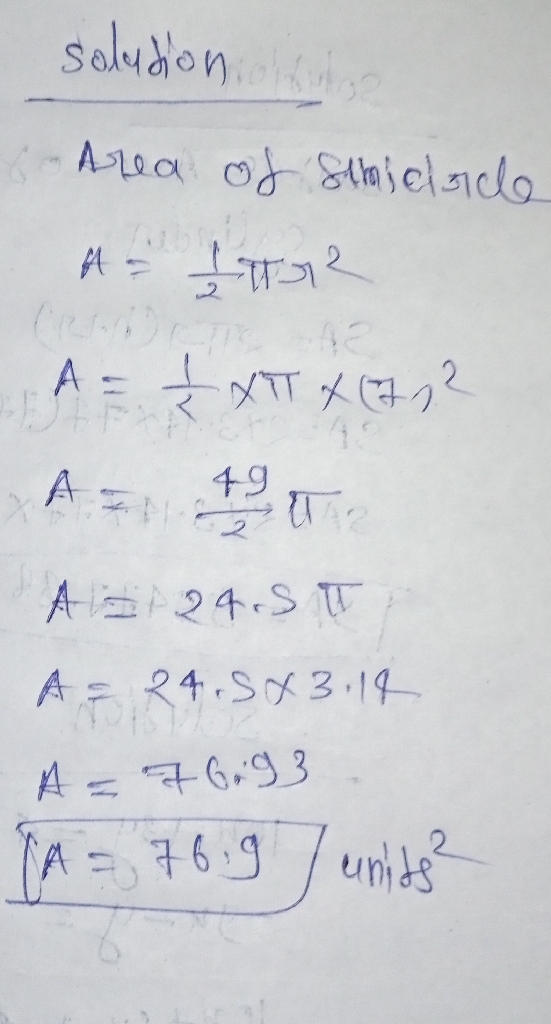 Solution
Area of Semicircle
A = 1/2 πr²
A = 1/2 × π × (7)²
A = 49/2 π
A = 24.5 π
A = 24.5 × 3.14
A = 76.93
A = 76.9 units²